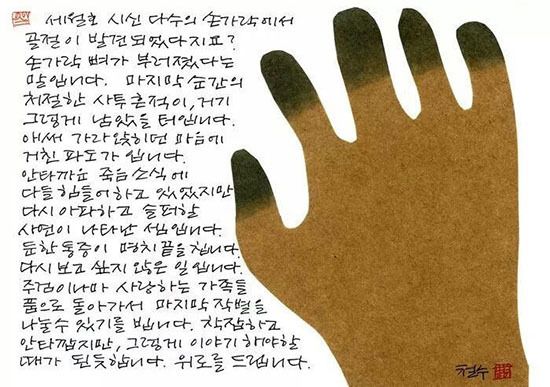 세월호 시신 다수의 손가락에서
골절이 발견되었다지요?
손가락 뼈가 부러졌다는
말입니다. 마지막 순간의
처절한 사투흔적이, 거기
그렇게 남았을 터입니다.
애써 가라앉히던 마음에
거친 파도가 입니다.
안타까운 죽음소식에
다들 힘들어하고 있었지만
다시 아파하고 슬퍼할
사연이 나타난 셈입니다.
둔한 통증이 명치 끝을 칩니다.
다시 보고 싶지 않은 일입니다.
주검이나마 사랑하는 가족들
품으로 돌아가서 마지막 작별을
나눌수 있기를 빕니다. 착잡하고
안타깝지만, 그렇게 이야기 해야할
때가 된듯합니다. 위로를 드립니다.
철수